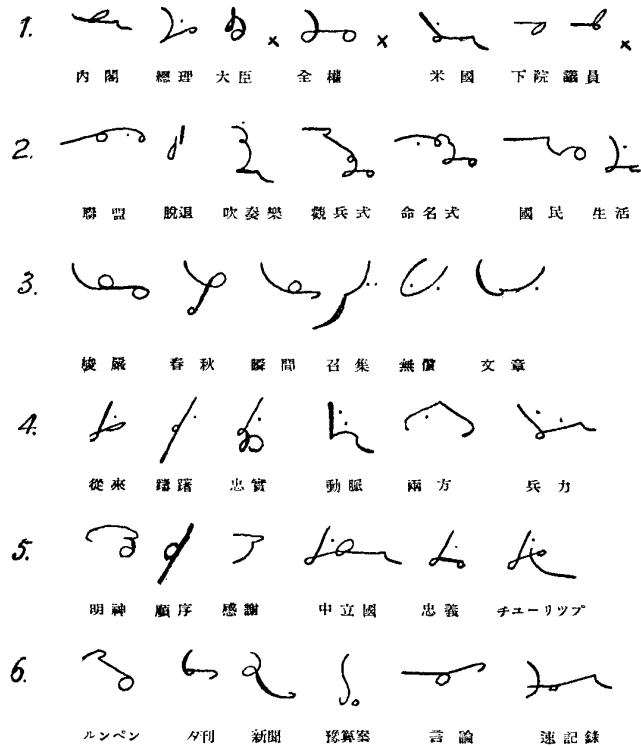 1.
內閣 總理 大臣 × 全權 × 米國 下院 議員 ×
2.
聯盟 脫退 吹奏樂 觀兵式 命名式 國民 生活
3.
峻嚴 春秋 瞬間 召集 無償 文章
4.
從來 躊躇 忠實 動脈 兩方 兵力
5.
明神 順序 感謝 中立國 忠義 チユーリツプ
6.
ルンペン 夕刊 新聞 豫算案 言論 速記錄